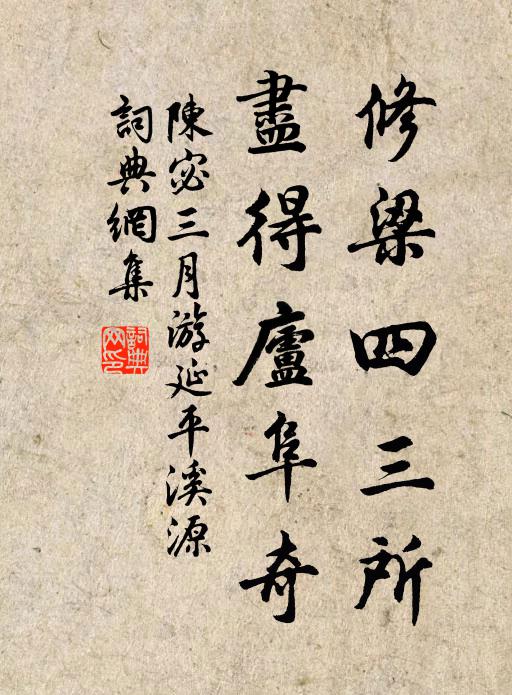 修梁四三所
盡得廬阜奇
陳宓三月游延平溪源
詞典網集
詞典網印